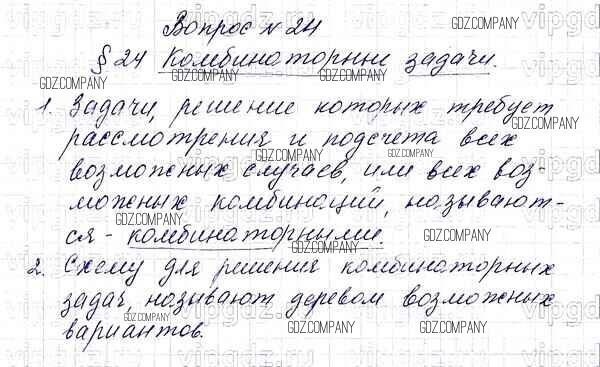 Вопрос № 24
§ 24 Комбинаторные задачи.
1. Задачи, решение которых требует
рассмотрения и подсчета всех
возможных случаев, или всех воз-
можных комбинаций, называют-
ся - комбинаторными.
2. Схему для решения комбинаторных
задач, называют деревом возможных
вариантов.
GDZ.COMPANY
GDZ.COMPANY
GDZ.COMPANY
GDZ.COMPANY
GDZ.COMPANY
GDZ.COMPANY
GDZ.COMPANY
GDZ.COMPANY
GDZ.COMPANY
GDZ.COMPANY
GDZ.COMPANY
GDZ.COMPANY